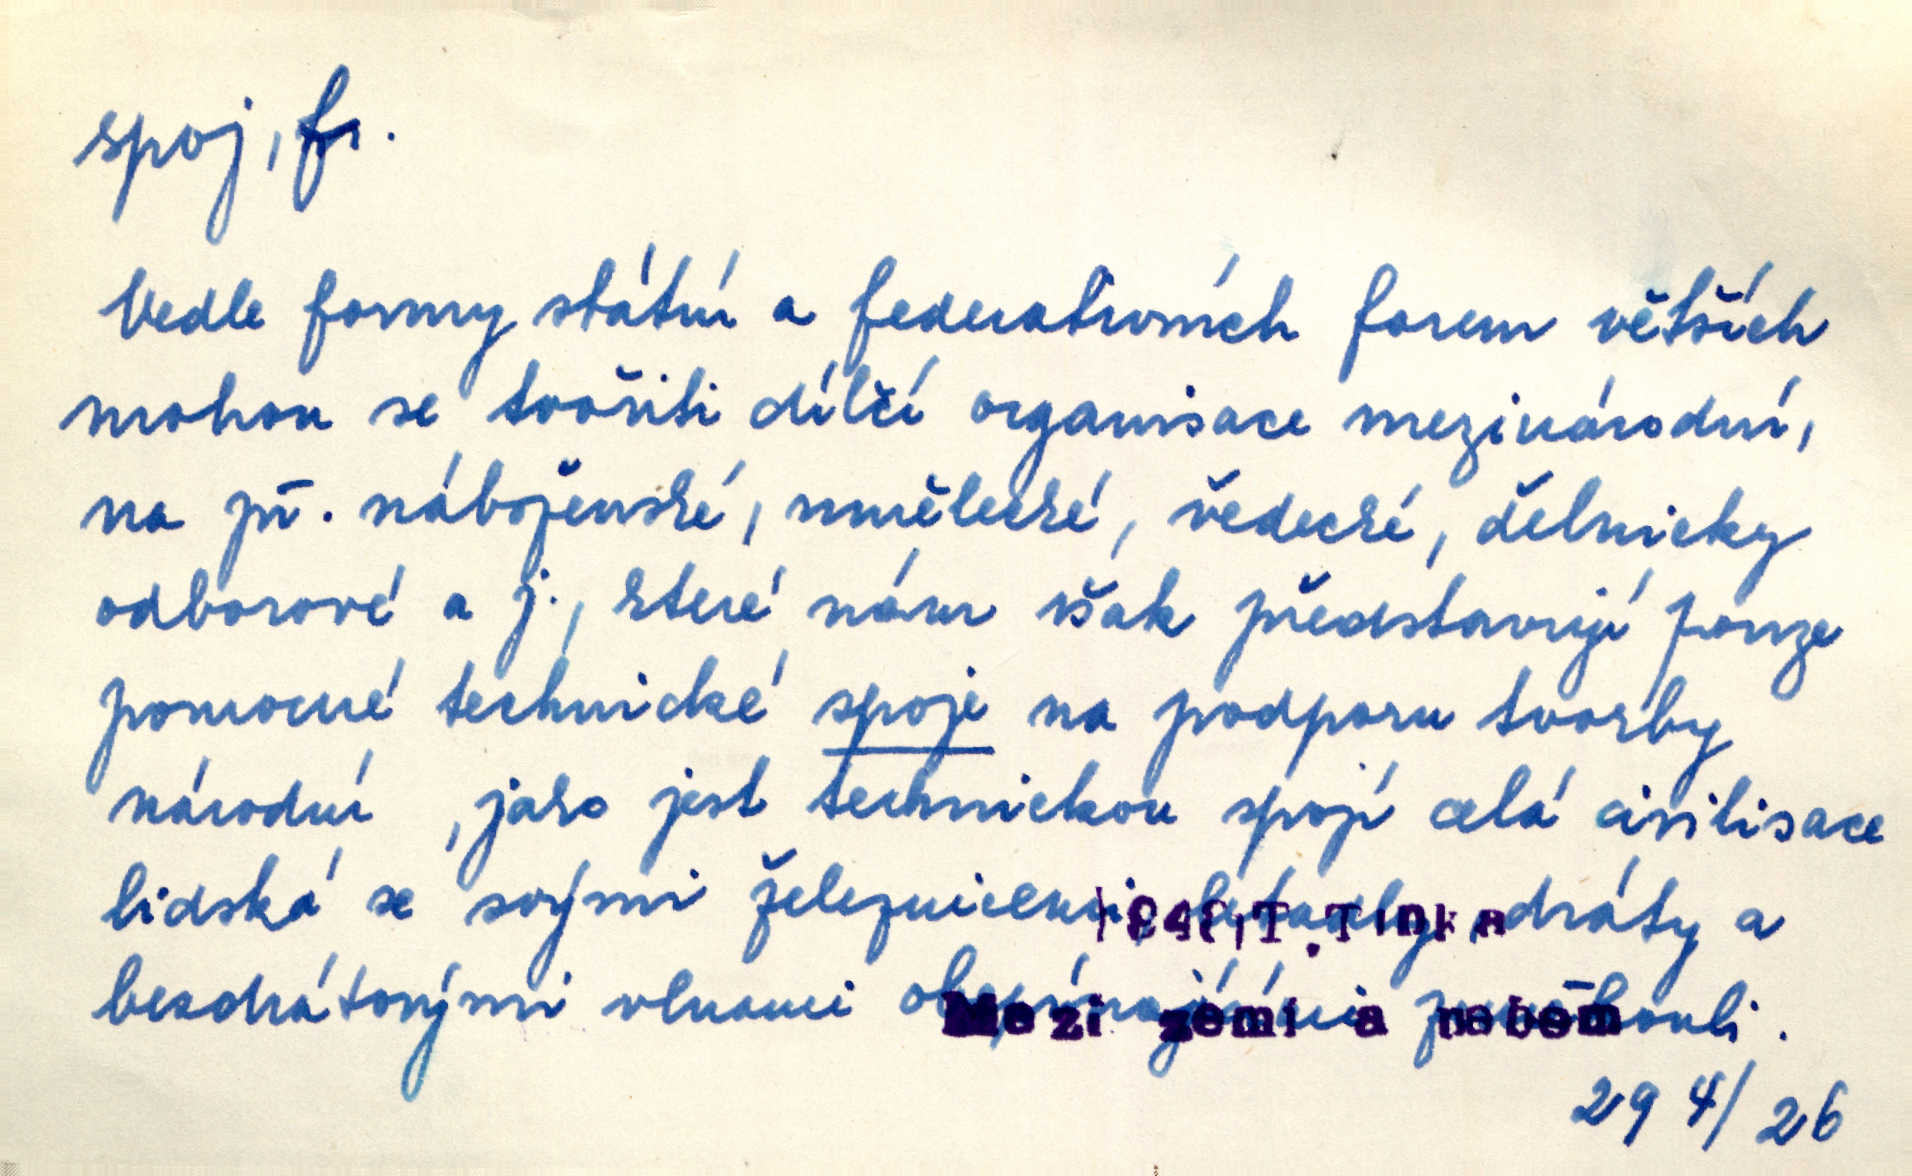 spoj, fr.
Vedle formy státní a federativních forem větších
mohou se tvořiti dílčí organisace mezinárodní,
na př. náboženské, umělecké, vědecké, dělnicky
odborové a j., které nám však představují pouze
pomocné technické spoje na podporu tvorby
národní , jako jest technickou spojí celá civilisace
lidská se svými železnicemi, létadly, dráty a
bezdrátovými vlnami obepínajícími zeměkouli.
T. Tinka
Mezi zemí a nebem
29 4/26